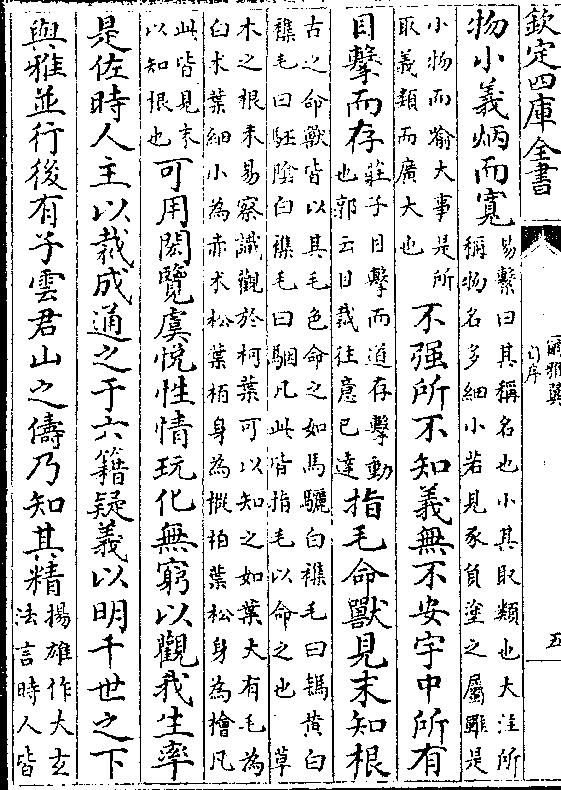 欽定四庫全書
爾雅翼
自序
五
物小義炳而寛
易繫曰其稱名也小其取類也大注所
稱物名多細小若見豕負塗之屬雖是
小物而喻大事是所
取義類而廣大也
不强所不知義無不安宇中所有
目擊而存
莊子目擊而道存擊動
也郭云目裁往意已達
指毛命獸見末知根
古之命獸皆以其毛色命之如馬驪白襍毛曰鴇黄白
襍毛曰駓陰白襍毛曰駰凡此皆指毛以命之也 草
木之根未易察識觀於柯葉可以知之如葉大有毛為
白术葉細小為赤术松葉栢身為樅栢葉松身為檜凡
此皆見末
以知根也
可用閎覽虞悦性情玩化無窮以觀我生率
是佐時人主以裁成通之于六籍疑義以明千世之下
與雅並行後有子雲君山之儔乃知其精
揚雄作大玄
法言時人皆